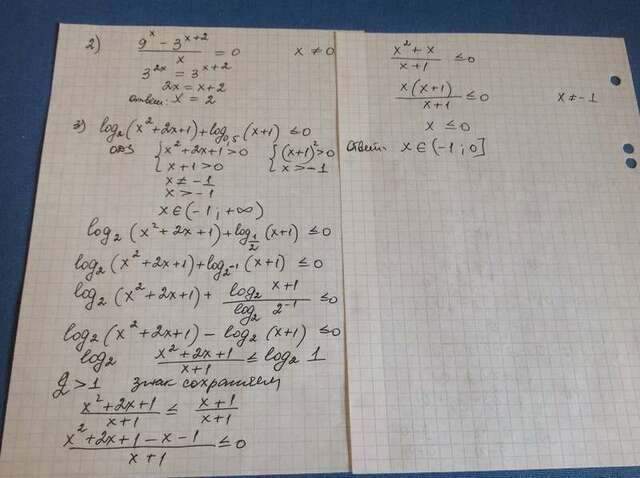 2) (9^x - 3^(x+2))/x = 0    x ≠ 0
3^(2x) = 3^(x+2)
2x = x+2
ответ: x = 2
3) log₂(x²+2x+1)+log₀,₅(x+1) ≤0
ОДЗ { x²+2x+1>0    { (x+1)²>0
{ x+1>0    { x>-1
x ≠ -1
x > -1
x ∈ (-1; +∞)
log₂(x²+2x+1)+log_(1/2)(x+1) ≤0
log₂(x²+2x+1)+log_(2⁻¹)(x+1) ≤0
log₂(x²+2x+1)+ (log₂ x+1)/(log₂ 2⁻¹) ≤0
log₂(x²+2x+1) - log₂(x+1) ≤0
log₂ (x²+2x+1)/(x+1) ≤ log₂ 1
2>1 знак сохраняем
(x²+2x+1)/(x+1) ≤ (x+1)/(x+1)
(x²+2x+1-x-1)/(x+1) ≤0
(x²+x)/(x+1) ≤0
x(x+1)/(x+1) ≤0    x ≠ -1
x ≤ 0
Ответ: x ∈ (-1; 0]